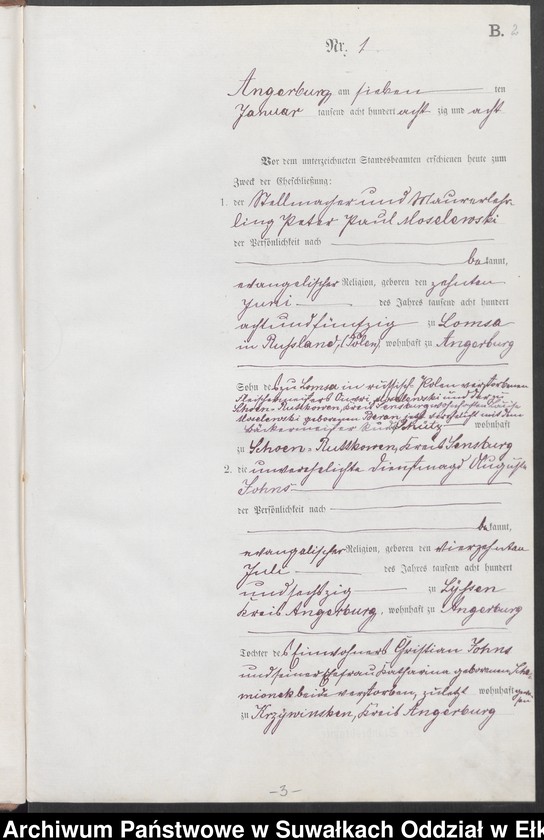 B. 2
Nr. 1
Angerburg am sieben ten
Januar tausend acht hundert acht zig und acht
Vor dem unterzeichneten Standesbeamten erschienen heute zum
Zweck der Eheschließung:
1. der Stellmacher und Maurerlehr-
ling Peter Paul Moselewski
der Persönlichkeit nach
be kannt,
evangelischer Religion, geboren den zehnten
Juni des Jahres tausend acht hundert
achtundfünfzig zu Lomsa
in Russland, (Polen) wohnhaft zu Angerburg
Sohn des zu Lomsa in russisch Polen verstorbenen
Moselewski geborenen jetzt verehelicht mit dem
wohnhaft
zu Schoen-Ruttkowen, Kreis Sensburg
2. die unverehelichte Dienstmagd Auguste
Johns
der Persönlichkeit nach
be kannt,
evangelischer Religion, geboren den vierzehnten
Juli des Jahres tausend acht hundert
undsechszig zu Lyssen
Kreis Angerburg, wohnhaft zu Angerburg
Tochter des Einwohners Christian Johns
und seiner Ehefrau Katharina geborenen
beide verstorben, zuletzt wohnhaft gewe-
sen
zu Krzywinsken, Kreis Angerburg
-3-
Archiwum Państwowe w Suwałkach Oddział w Ełk